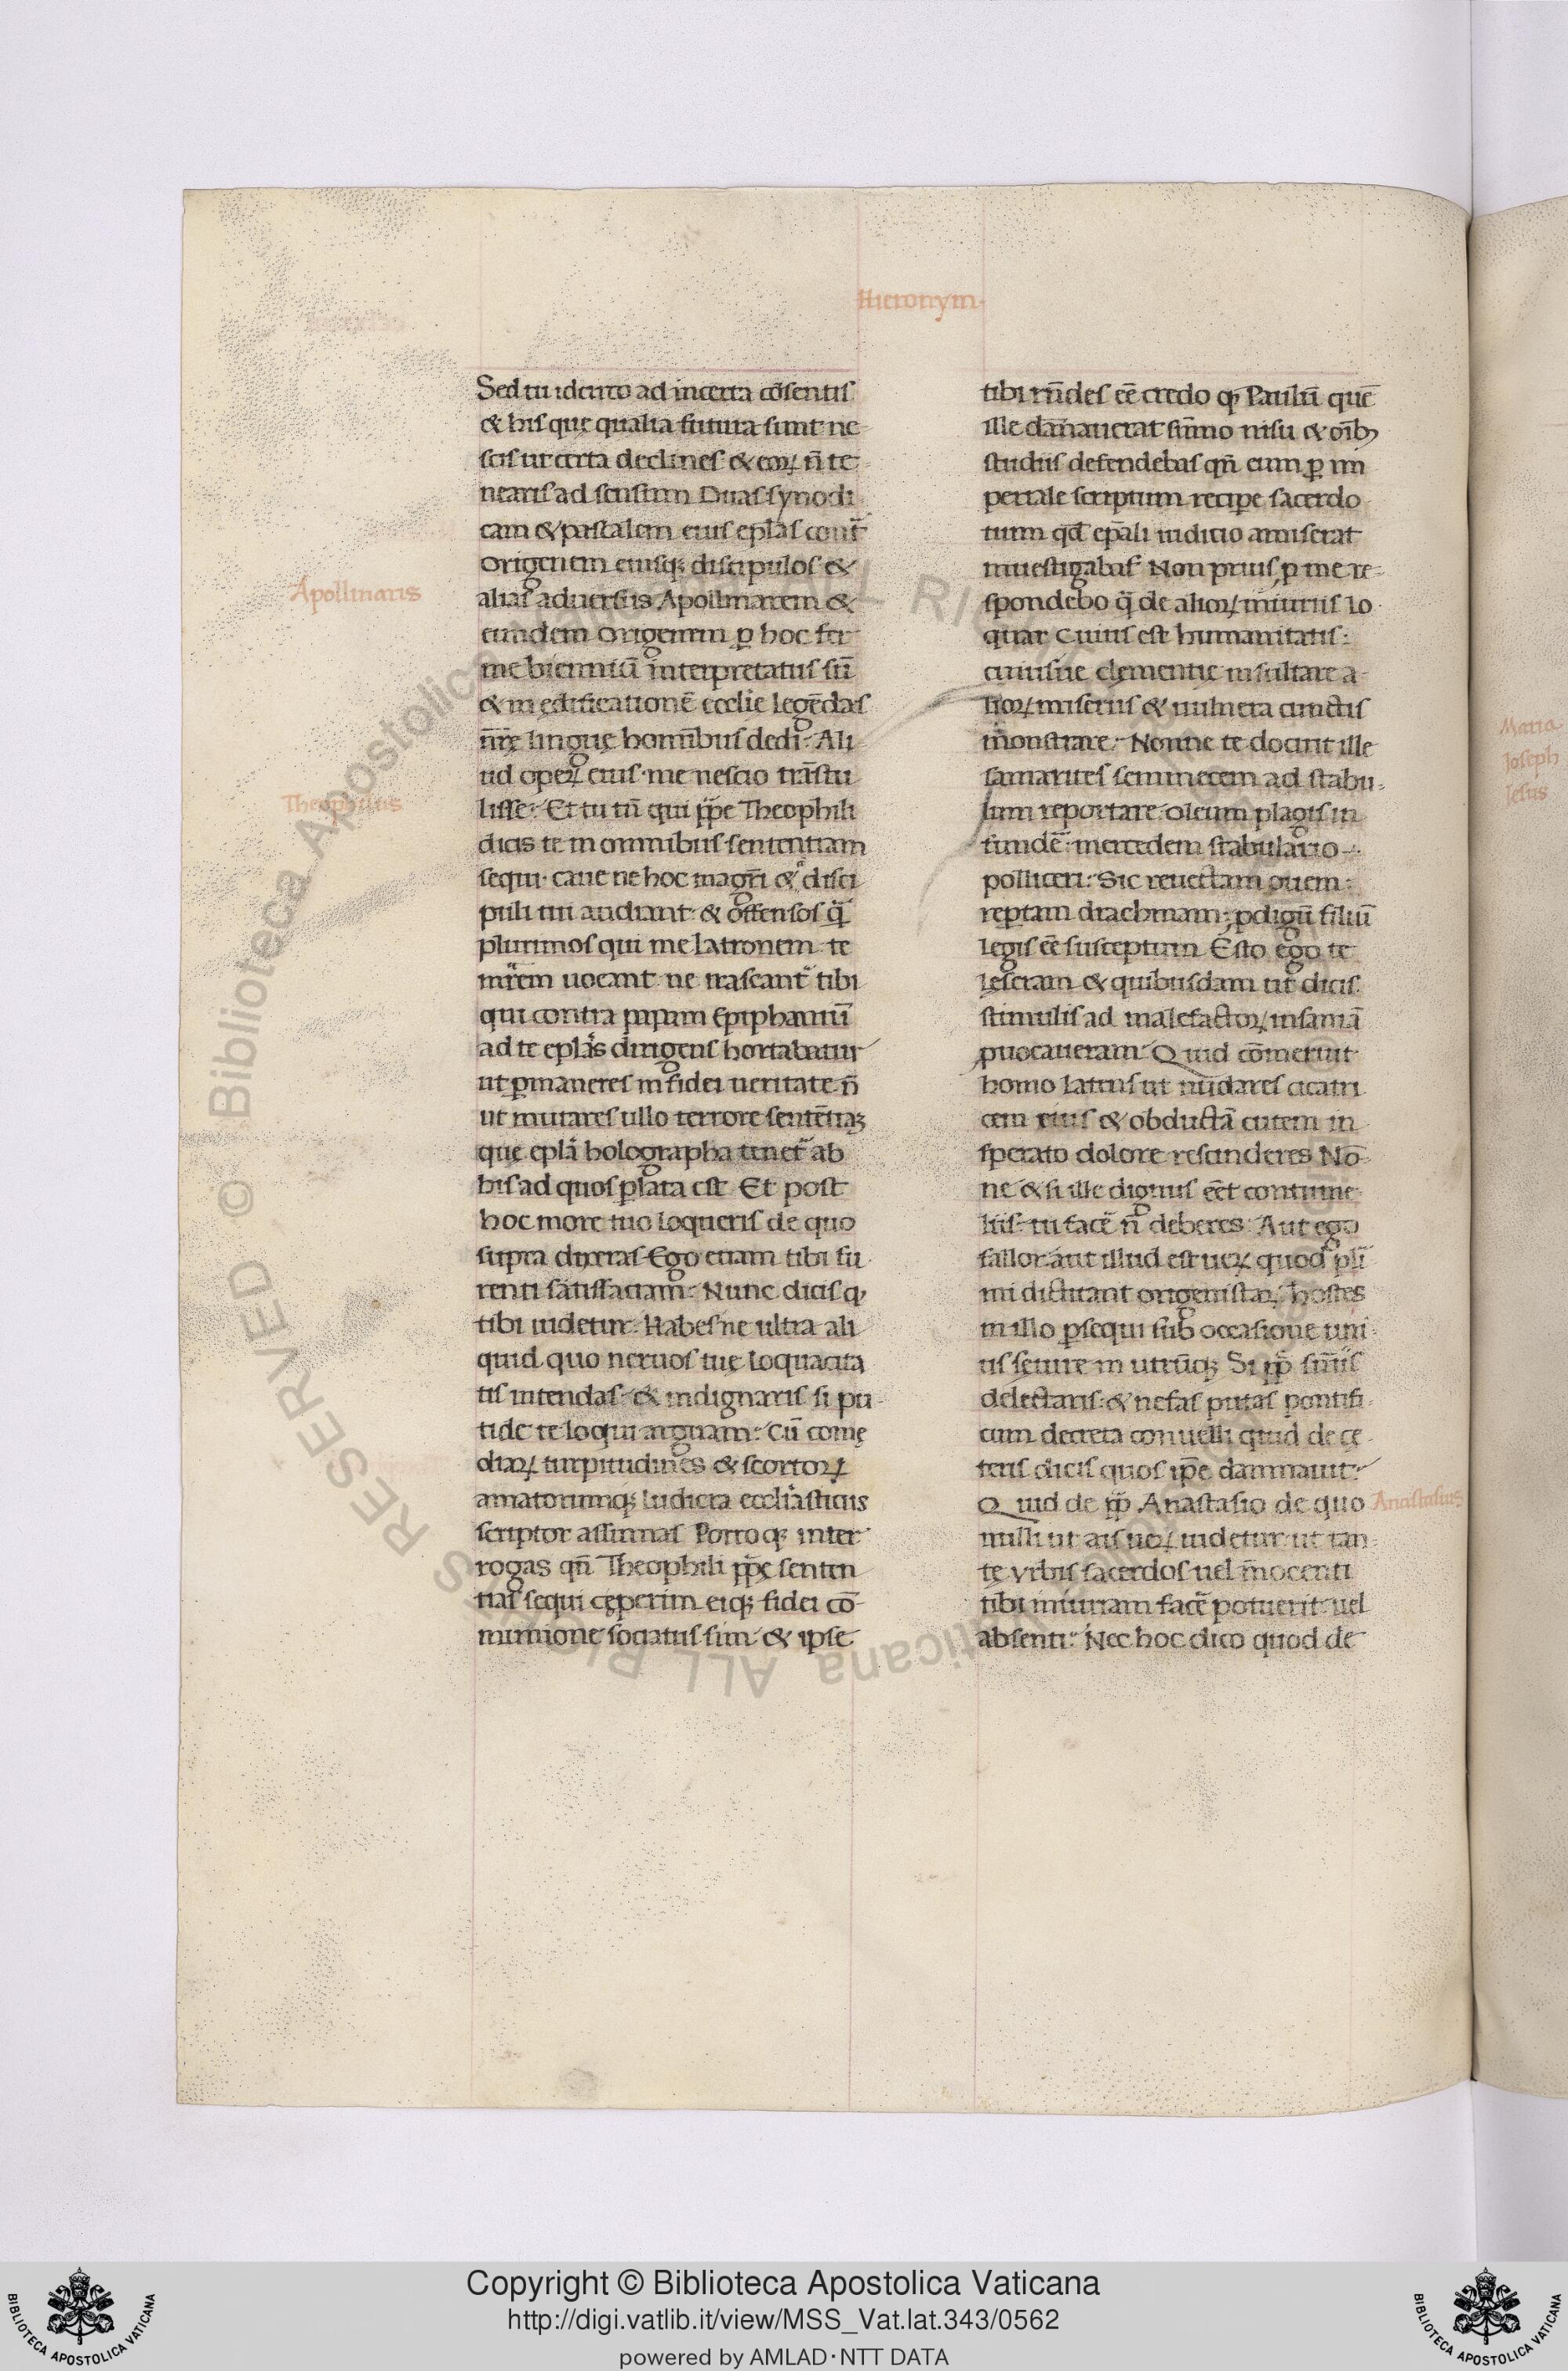 Hieronym·
Sed tu idcirco ad incerta cōsentis
& his que qualia futura sunt ne
scis ut certa declines· & eoꝝ n̄ te
nearis ad sensum Duas synodi
cam & pascalem eius eplās contr̄
origenem eiusq; discipulos &
alias aduersus Apollinarem &
eundem origenem ꝑ hoc fer
me bienniū interpretatus sū
& in ędificationē ecclie legēdas
nr̄ę linguę hominibus dedi· Ali
ud operꝝ eius· me nescio trāstu
lisse· Et tu tn̄ qui pp̄e Theophili
dicis te in omnibus sententiam
sequi· caue ne hoc magr̄i & disci
puli tui audiant· & offensos q̄
plurimos qui me latronem· te
mr̄em uocant· ne irascant̄ tibi
qui contra papam Epiphaniū
ad te eplās dirigens hortabatur
ut ꝑmaneres in fidei ueritate· n̄
ut mutares ullo terrore sentētiaꝫ
quę eplā holographa tenet̄ ab
his ad quos ꝑlata est· Et post
hoc more tuo loqueris de quo
supra dixeras· Ego etiam tibi fu
renti satisfaciam· Nunc dicis q̧
tibi uidetur· Habes ne ultra ali
quid quo neruos tuę loquacita
tis intendas· & indignaris si pu
tide te loqui arguam· Cū comę
diaꝝ turpitudines & scortoꝝ
amatorumq; ludicra ecclīasticus
scriptor assumas Porro q; inter
rogas qn̄ Theophili pp̄ę senten
tias sequi cęperim eiq; fidei cō
munione sociatus sim· & ipse
Apollinaris
Theophilus
tibi rn̄des eē credo q̧ Paulū quē
ille dānauerat sūmo nisu & oīb;
studiis defendebas qn̄ eum ꝑ im
periale scriptum recipe sacerdo
tium qd̄ epāli iudicio amiserat
inuestigabas· Non prius ꝑ me re
spondebo q̄ de alioꝝ iniuriis lo
quar· Cuius est humanitatis·
cuiusue clementię insultare a
lioꝝ miseriis & uulnera cunctis
monstrare· Nonne te docuit ille
samarites seminecem ad stabu
lum reportare· oleum plagis in
fundē· mercedem stabulario
polliceri· Sic reuectam ouem·
reꝑtam drachmam· ꝓdigū filiū
legis eē susceptum· Esto· ego te
lęseram & quibusdam ut dicis
stimulis ad malefactoꝝ insaniā
ꝓuocaueram· Quid cōmeruit
homo latens ut nudares cicatri
cem eius & obductā cutem in
sperato dolore rescinderes Nō
ne & si ille dignus eēt contume
liis· tu facē n̄ deberes· Aut ego
fallor· aut illud est ueꝝ quod pli
mi dictitant origenistaꝝ hostes
in illo ꝑsequi sub occasione uni
us sęuire in utrūq; Si pp̄
delectaris· & nefas putas pontifi
cum decreta conuelli quid de cę
teris dicis quos ip̄e damnauit·
Quid de pp̄ Anastasio de quo
nulli ut ais uoꝝ uidetur ut tan
tę urbis sacerdos uel inocenti
tibi iniuriam facē potuerit· uel
absenti· Nec hoc dico quod de
Anastasius
Maria
Joseph
Jesus
© Biblioteca Apostolica Vaticana ALL RIGHTS RESERVED
Copyright © Biblioteca Apostolica Vaticana
http://digi.vatlib.it/view/MSS_Vat.lat.343/0562
powered by AMLAD·NTT DATA
BIBLIOTECA APOSTOLICA VATICANA
BIBLIOTECA APOSTOLICA VATICANA